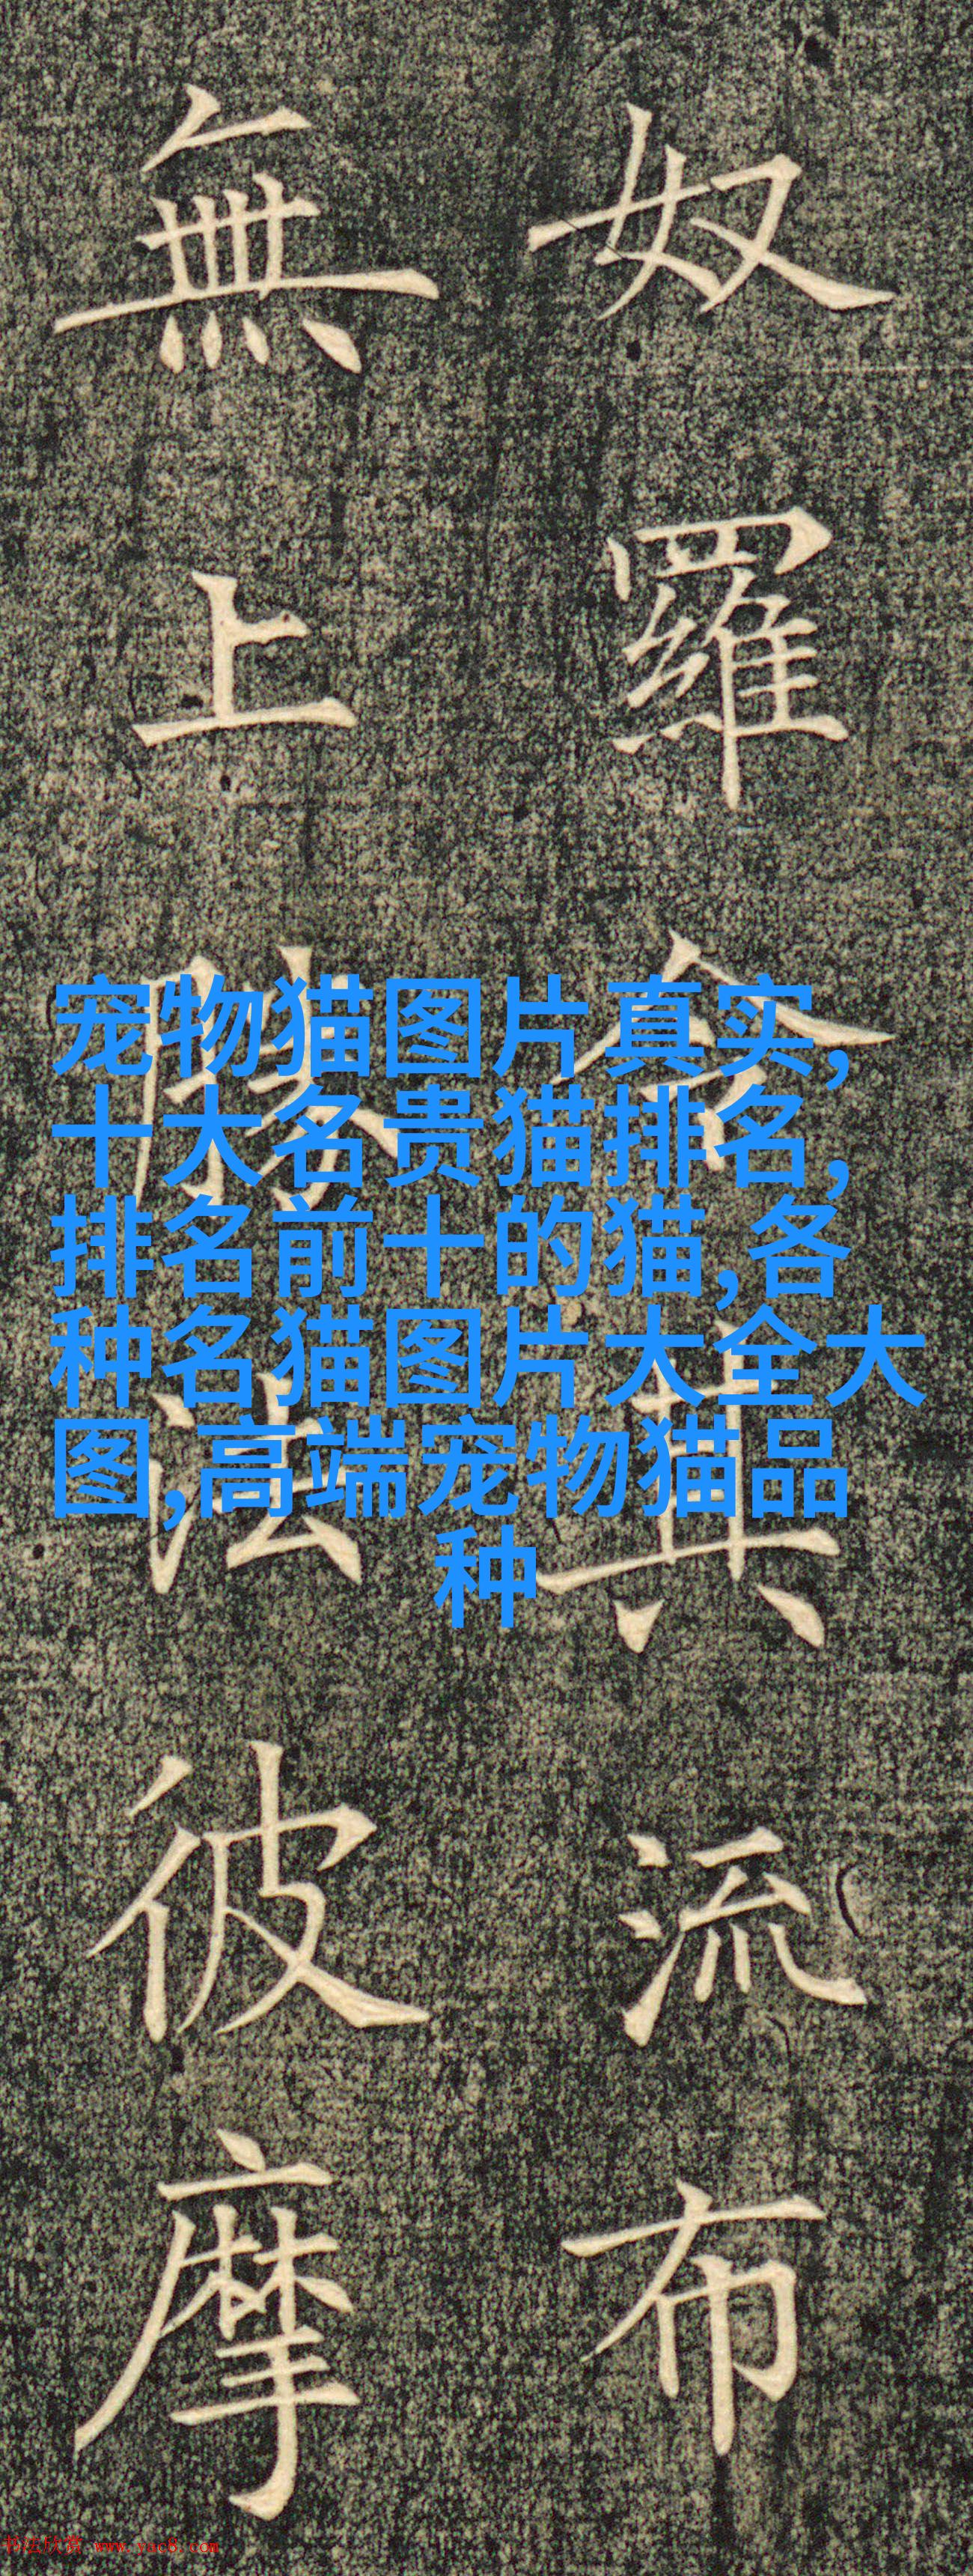 奴羅令其流布
無上勝法彼摩
宠物猫图片真实,
十大名贵猫排名,
排名前十的猫,各
种名猫图片大全大
图,高端宠物猫品
种
书法欣赏 www.yac8.com